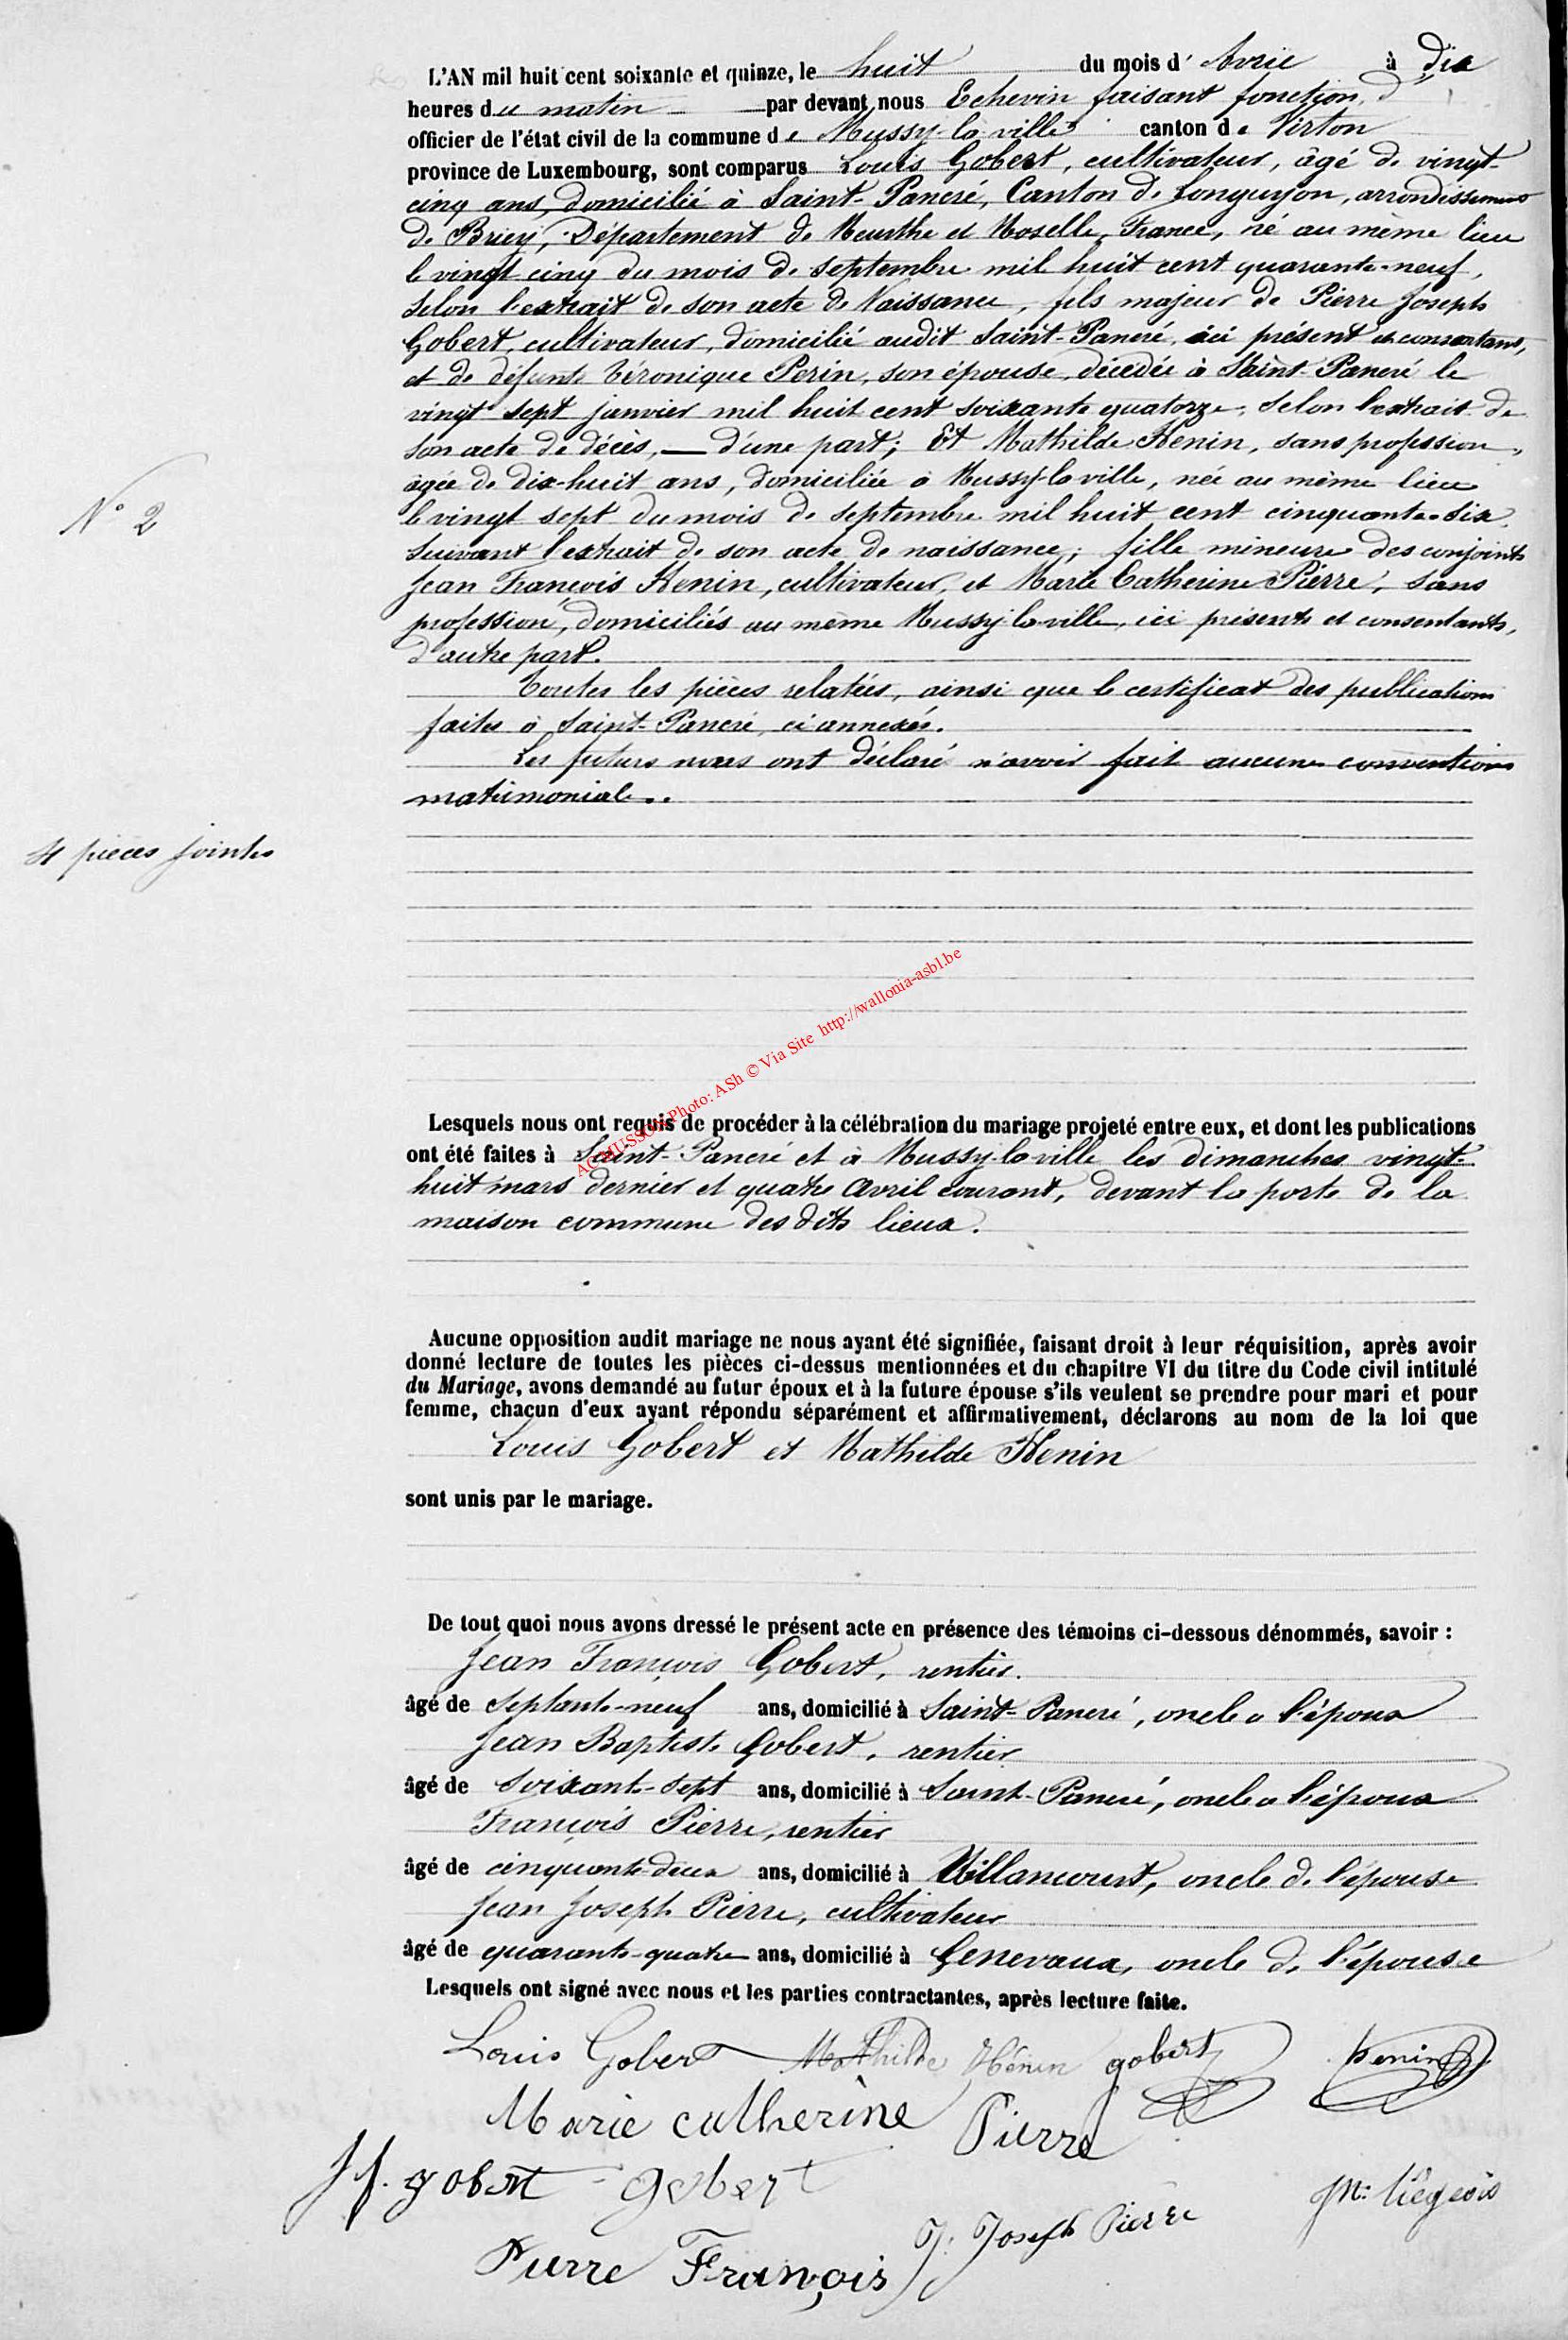 L'AN mil huit cent soixante et quinze, le huit du mois d'Avril à dix
heures du matin par devant nous Echevin faisant fonction d'
officier de l'état civil de la commune de Mussy-la-ville canton de Virton
province de Luxembourg, sont comparus Louis Gobert, cultivateur, âgé de vingt-
cinq ans, domicilié à Saint-Pancré, Canton de Longuyon, arrondissement
de Briey, Département de Meurthe et Moselle, France, né au même lieu
le vingt cinq du mois de septembre mil huit cent quarante-neuf,
selon l'extrait de son acte de Naissance, fils majeur de Pierre Joseph
Gobert, cultivateur, domicilié audit Saint-Pancré, ici présent et consentant,
et de défunte Véronique Perin, son épouse, décédée à Saint-Pancré le
vingt sept janvier mil huit cent soixante quatorze, selon l'extrait de
son acte de décès, — d'une part; Et Mathilde Henin, sans profession,
âgée de dix-huit ans, domiciliée à Mussy-la-ville, née au même lieu
N° 2
le vingt sept du mois de septembre mil huit cent cinquante-six,
suivant l'extrait de son acte de naissance; fille mineure des conjoints
Jean François Henin, cultivateur, et Marie Catherine Pierre, sans
profession, domiciliés au même Mussy-la-ville, ici présents et consentants,
d'autre part.
Toutes les pièces relatées, ainsi que le certificat des publications
faites à Saint-Pancré, ci annexés.
Les futurs nous ont déclaré n'avoir fait aucune convention
matrimoniale.
4 pièces jointes
AC MUSSON Photo: ASh © Via Site http://wallonia-asbl.be
Lesquels nous ont requis de procéder à la célébration du mariage projeté entre eux, et dont les publications
ont été faites à Saint-Pancré et à Mussy-la-ville les dimanches vingt-
huit mars dernier et quatre Avril courant, devant la porte de la
maison commune des dits lieux.
Aucune opposition audit mariage ne nous ayant été signifiée, faisant droit à leur réquisition, après avoir
donné lecture de toutes les pièces ci-dessus mentionnées et du chapitre VI du titre du Code civil intitulé
du Mariage, avons demandé au futur époux et à la future épouse s'ils veulent se prendre pour mari et pour
femme, chacun d'eux ayant répondu séparément et affirmativement, déclarons au nom de la loi que
Louis Gobert et Mathilde Henin
sont unis par le mariage.
De tout quoi nous avons dressé le présent acte en présence des témoins ci-dessous dénommés, savoir :
Jean François Gobert, rentier.
âgé de septante-neuf ans, domicilié à Saint-Pancré, oncle à l'époux
Jean Baptiste Gobert, rentier
âgé de soixante-sept ans, domicilié à Saint-Pancré, oncle à l'époux
François Pierre, rentier
âgé de cinquante-deux ans, domicilié à Villancourt, oncle de l'épouse
Jean Joseph Pierre, cultivateur
âgé de quarante-quatre ans, domicilié à Genevaux, oncle de l'épouse
Lesquels ont signé avec nous et les parties contractantes, après lecture faite.
Louis Gobert Mathilde Hénin gobert henin
Marie catherine Pierre
J f. gobert gobert
J. Joseph Pierre JN: Liégeois
Pierre François